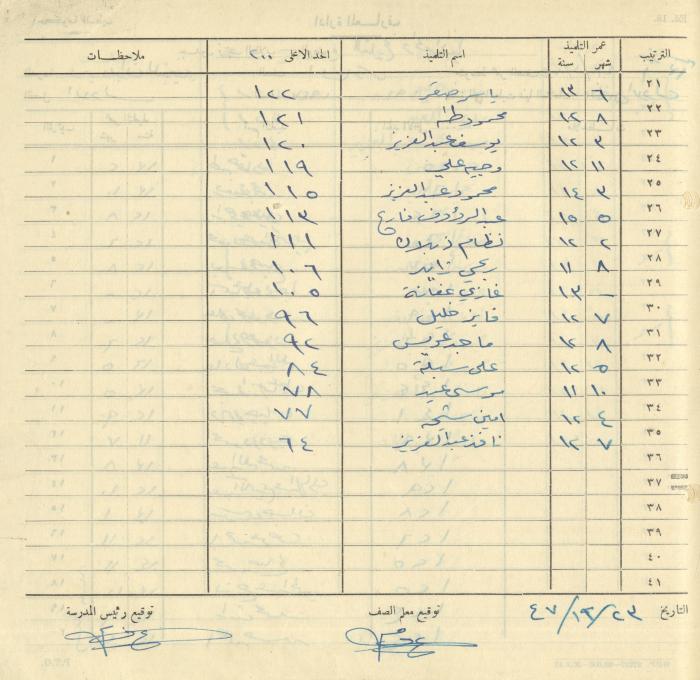 الترتيب عمر التلميذ شهر سنة اسم التلميذ الحد الاعلى ٢٠٠ ملاحظات
٢١ ٦ ١٣ ياسر صقر ١٢٢
٢٢ ٨ ١٢ محمود طه ١٢١
٢٣ ٣ ١٢ يوسف عبد العزيز ١٢٠
٢٤ ١١ ١٢ وجيه علي ١١٩
٢٥ ٣ ١٤ محمود عبد العزيز ١١٥
٢٦ ٥ ١٥ عبد الرؤوف فارع ١١٣
٢٧ ٢ ١٢ نظام ١١١
٢٨ ٨ ١١ ربحي زايد ١٠٦
٢٩ - ١٣ غازي عفانة ١٠٥
٣٠ ٧ ١٢ فايز خليل ٩٦
٣١ ٨ ١٢ ماجد عويس ٩٢
٣٢ ٥ ١٢ علي ٨٤
٣٣ ١٠ ١١ موسى عيد ٧٨
٣٤ ٤ ١٢ امين ٧٧
٣٥ ٧ ١٢ نافذ عبد العزيز ٦٤
٣٦
٣٧
٣٨
٣٩
٤٠
٤١
التاريخ ٢٣/١٢/٤٧ توقيع معلم الصف توقيع رئيس المدرسة